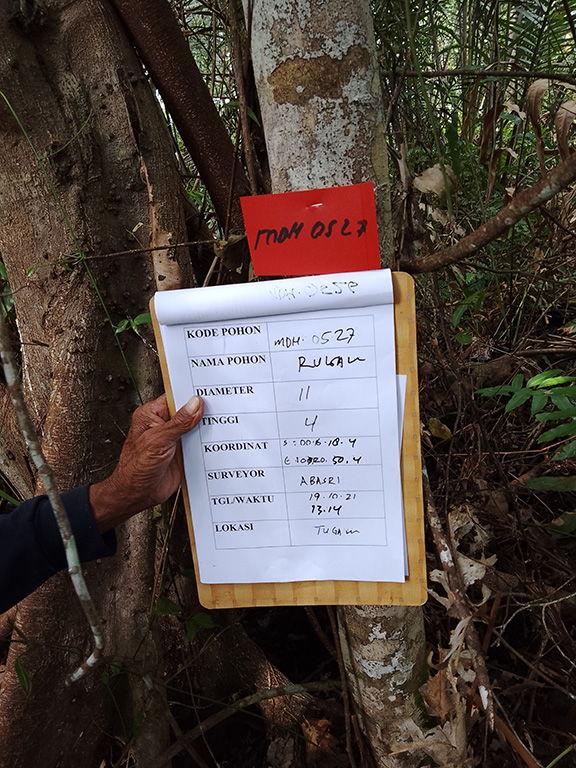 MDH 0527
KODE POHON MDH. 0527
NAMA POHON
DIAMETER 11
TINGGI 4
KOORDINAT S = 00.6.18.4
50.4
SURVEYOR ABASRI
TGL/WAKTU 19.10.21
13.14
LOKASI